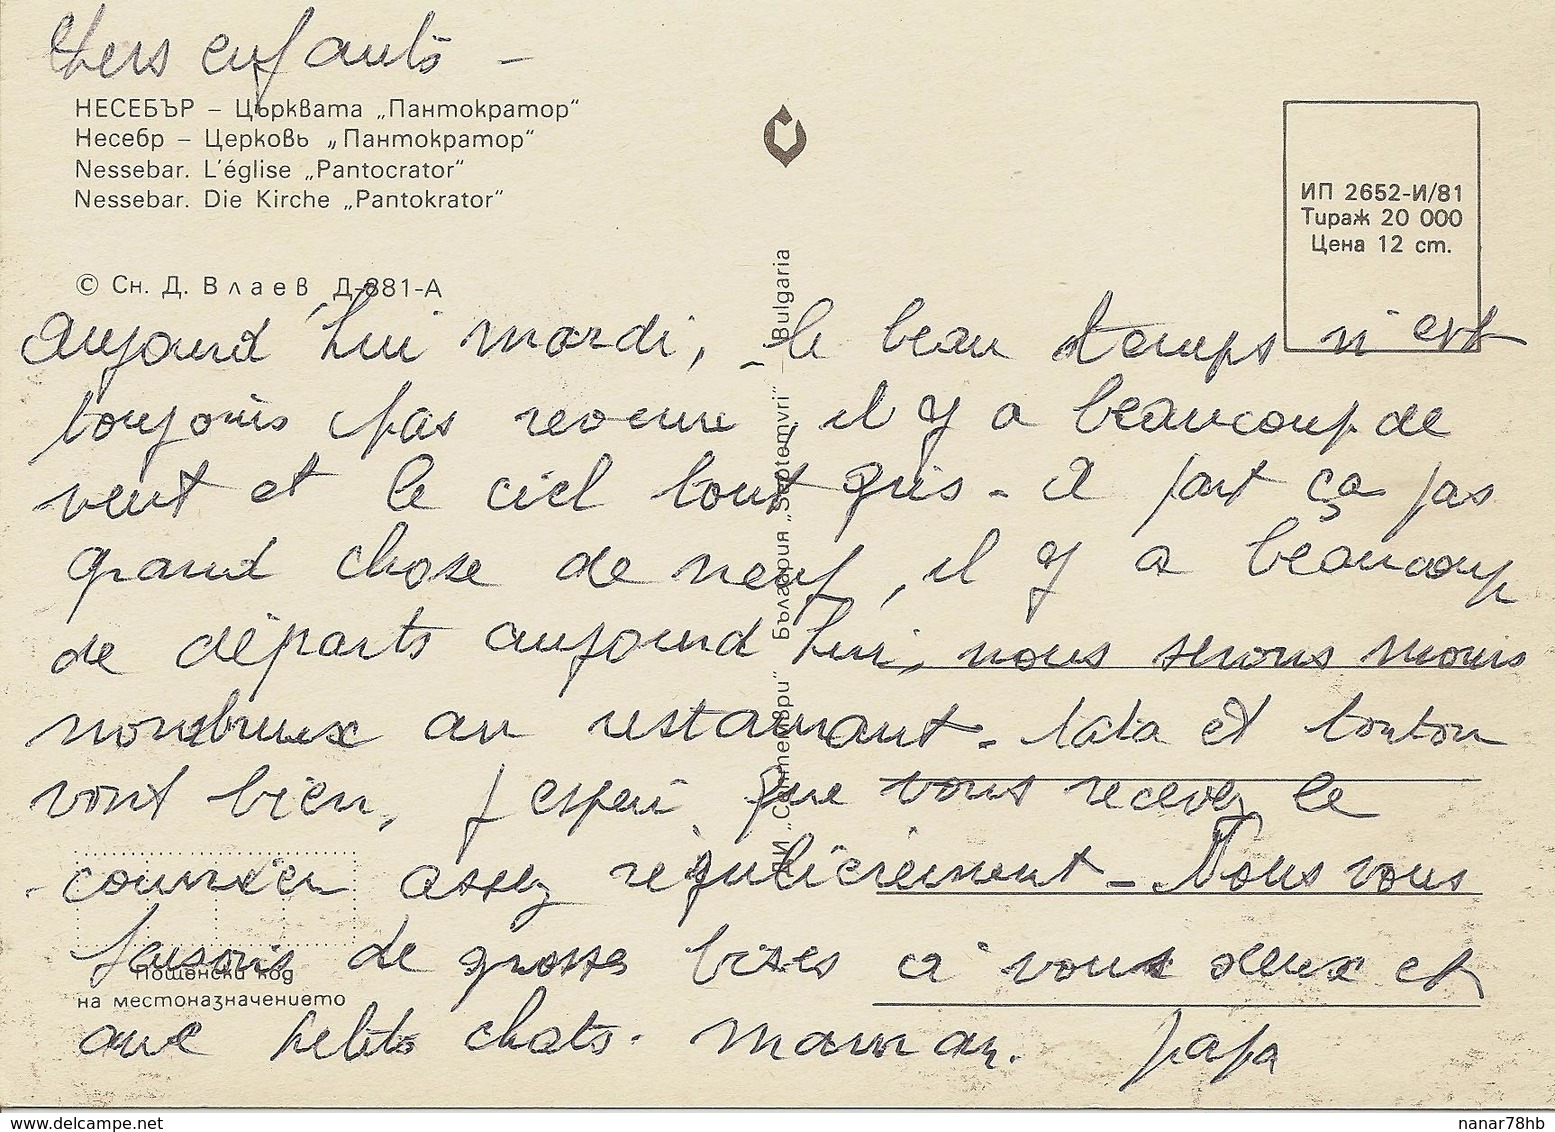 Chers enfants -
НЕСЕБЪР – Църквата „Пантократор“
Несебр – Церковь „Пантократор“
Nessebar. L'église „Pantocrator“
Nessebar. Die Kirche „Pantokrator“
ИП 2652-И/81
Тираж 20 000
Цена 12 ст.
© Сн. Д. Влаев Д-881-А
Aujourd'hui mardi, le beau temps n'est
toujours pas revenu, il y a beaucoup de
vent et le ciel tout gris - A part ça pas
grand chose de neuf, il y a beaucoup
de départs aujourd'hui, nous serons moins
nombreux au restaurant - tata et tonton
vont bien, j'espère que vous recevez le
courrier assez régulièrement - Nous vous
faisons de grosses bises à vous deux et
aux petits chats. maman. papa
ДИ „Септември“ България „Septemvri“ – Bulgaria
Пощенски код
на местоназначението
www.delcampe.net
nanar78hb